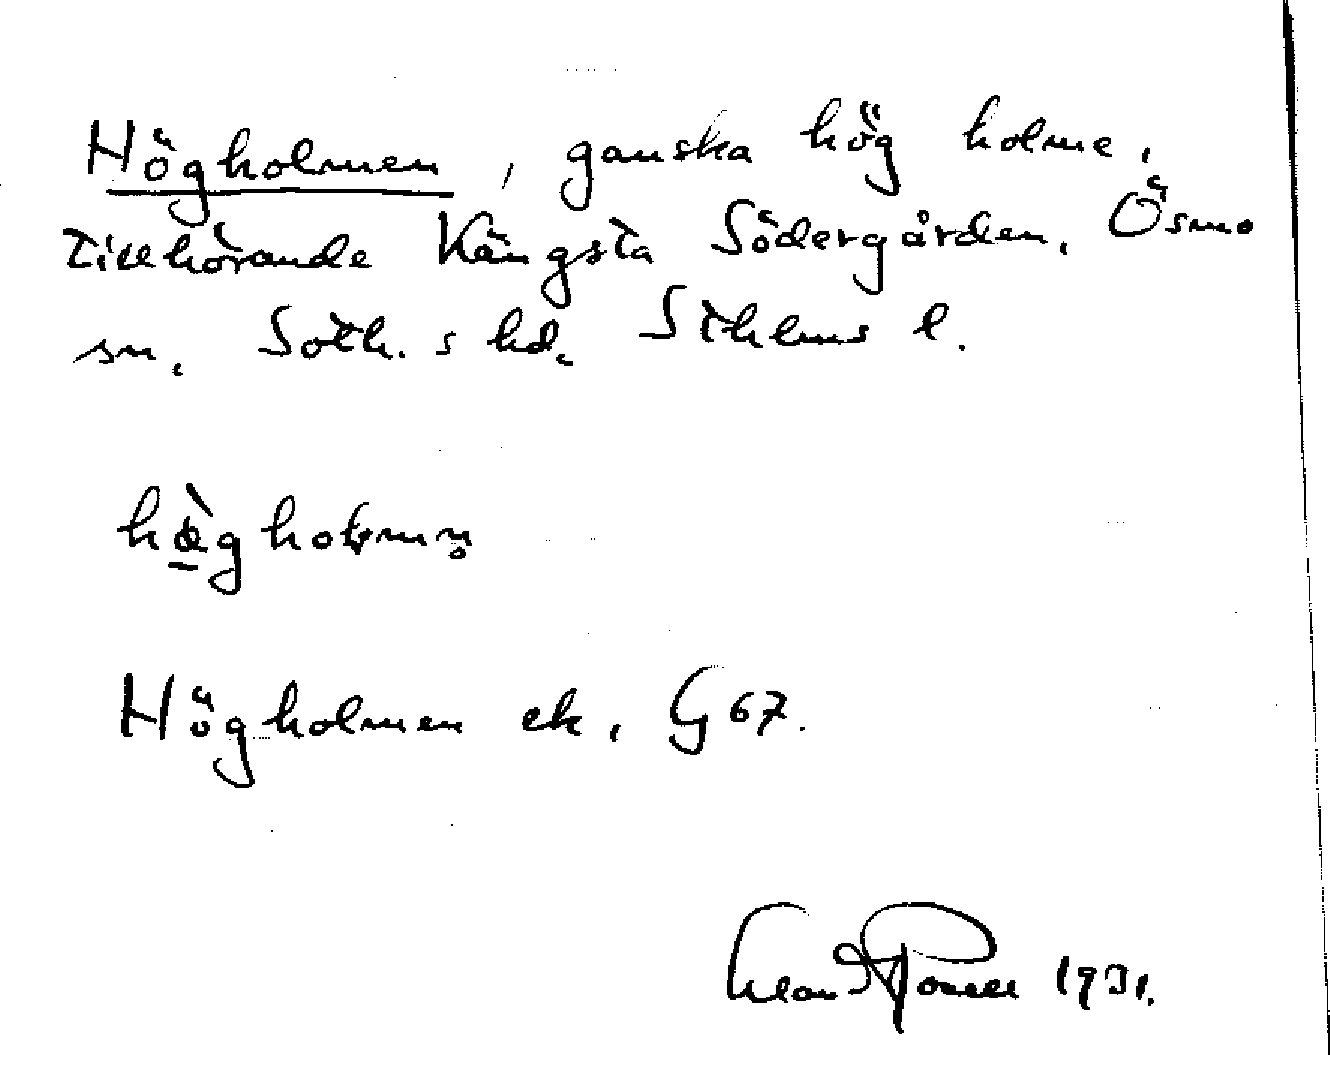 Högholmen, ganska hög holme,
tillhörande Kängsta Södergården, Ösmo
sn, Soth. s hd, Sthlms l.
Högholmen ek, G 67.
1931.